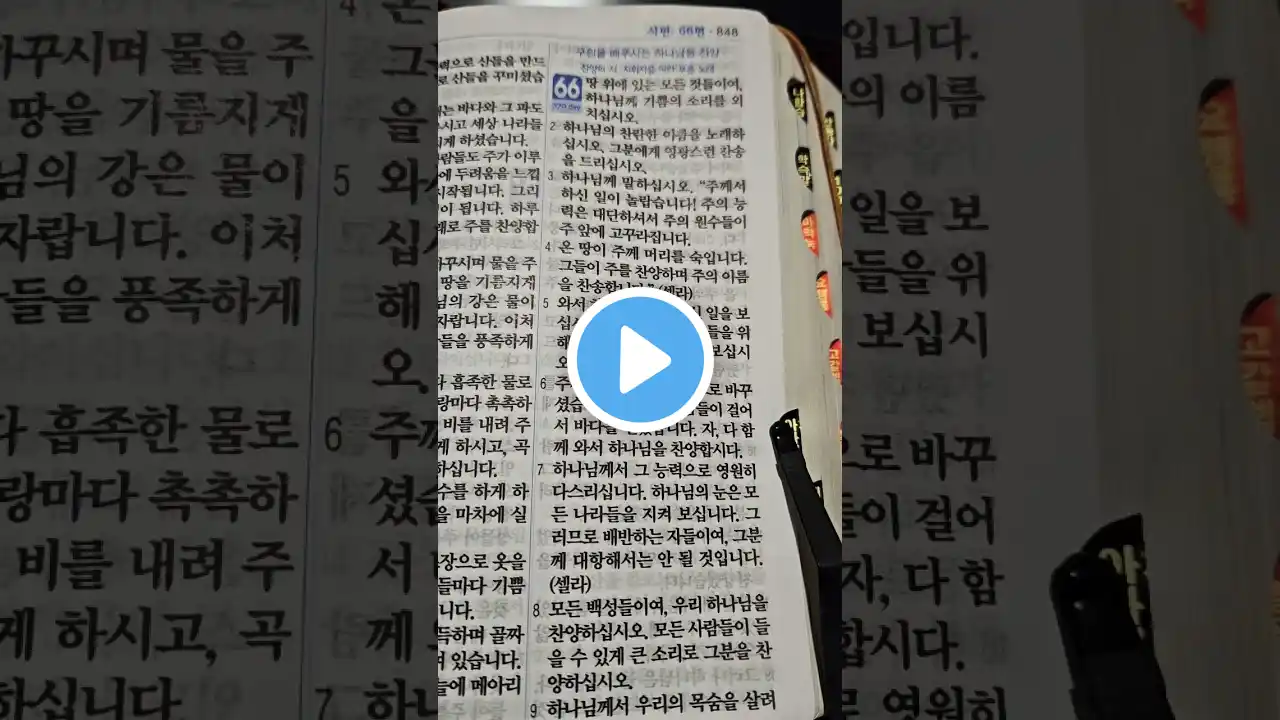 시편 66편 · 848
력으로 산들을 만드
로 산들을 꾸미셨습
는 바다와 그 파도
시고 세상 나라들
게 하셨습니다.
람들도 주가 이루
에 두려움을 느낍
시작됩니다. 그리
이 됩니다. 하루
례로 주를 찬양합
바꾸시며 물을 주
땅을 기름지게
님의 강은 물이
자랍니다. 이처
들을 풍족하게
다 흡족한 물로
랑마다 촉촉하
비를 내려 주
게 하시고, 곡
하십니다.
수를 하게 하
을 마차에 실
장으로 옷을
들마다 기쁨
니다.
득하며 골짜
여 있습니다.
늘에 메아리
66 땅 위에 있는 모든 것들이여,
하나님께 기쁨의 소리를 외
치십시오.
2 하나님의 찬란한 이름을 노래하
십시오. 그분에게 영광스런 찬송
을 드리십시오.
3 하나님께 말하십시오. “주께서
하신 일이 놀랍습니다! 주의 능
력은 대단하셔서 주의 원수들이
주 앞에 고꾸라집니다.
4 온 땅이 주께 머리를 숙입니다.
그들이 주를 찬양하며 주의 이름
을 찬송합니다.” (셀라)
5 와서 일을 보
십시 들을 위
해 보십시
오.
6 주께 로 바꾸
셨습 들이 걸어
서 바다를 자, 다 함
께 와서 하나님을 찬양합시다.
7 하나님께서 그 능력으로 영원히
다스리십니다. 하나님의 눈은 모
든 나라들을 지켜 보십니다. 그
러므로 배반하는 자들이여, 그분
께 대항해서는 안 될 것입니다.
(셀라)
8 모든 백성들이여, 우리 하나님을
찬양하십시오. 모든 사람들이 들
을 수 있게 큰 소리로 그분을 찬
양하십시오.
9 하나님께서 우리의 목숨을 살려